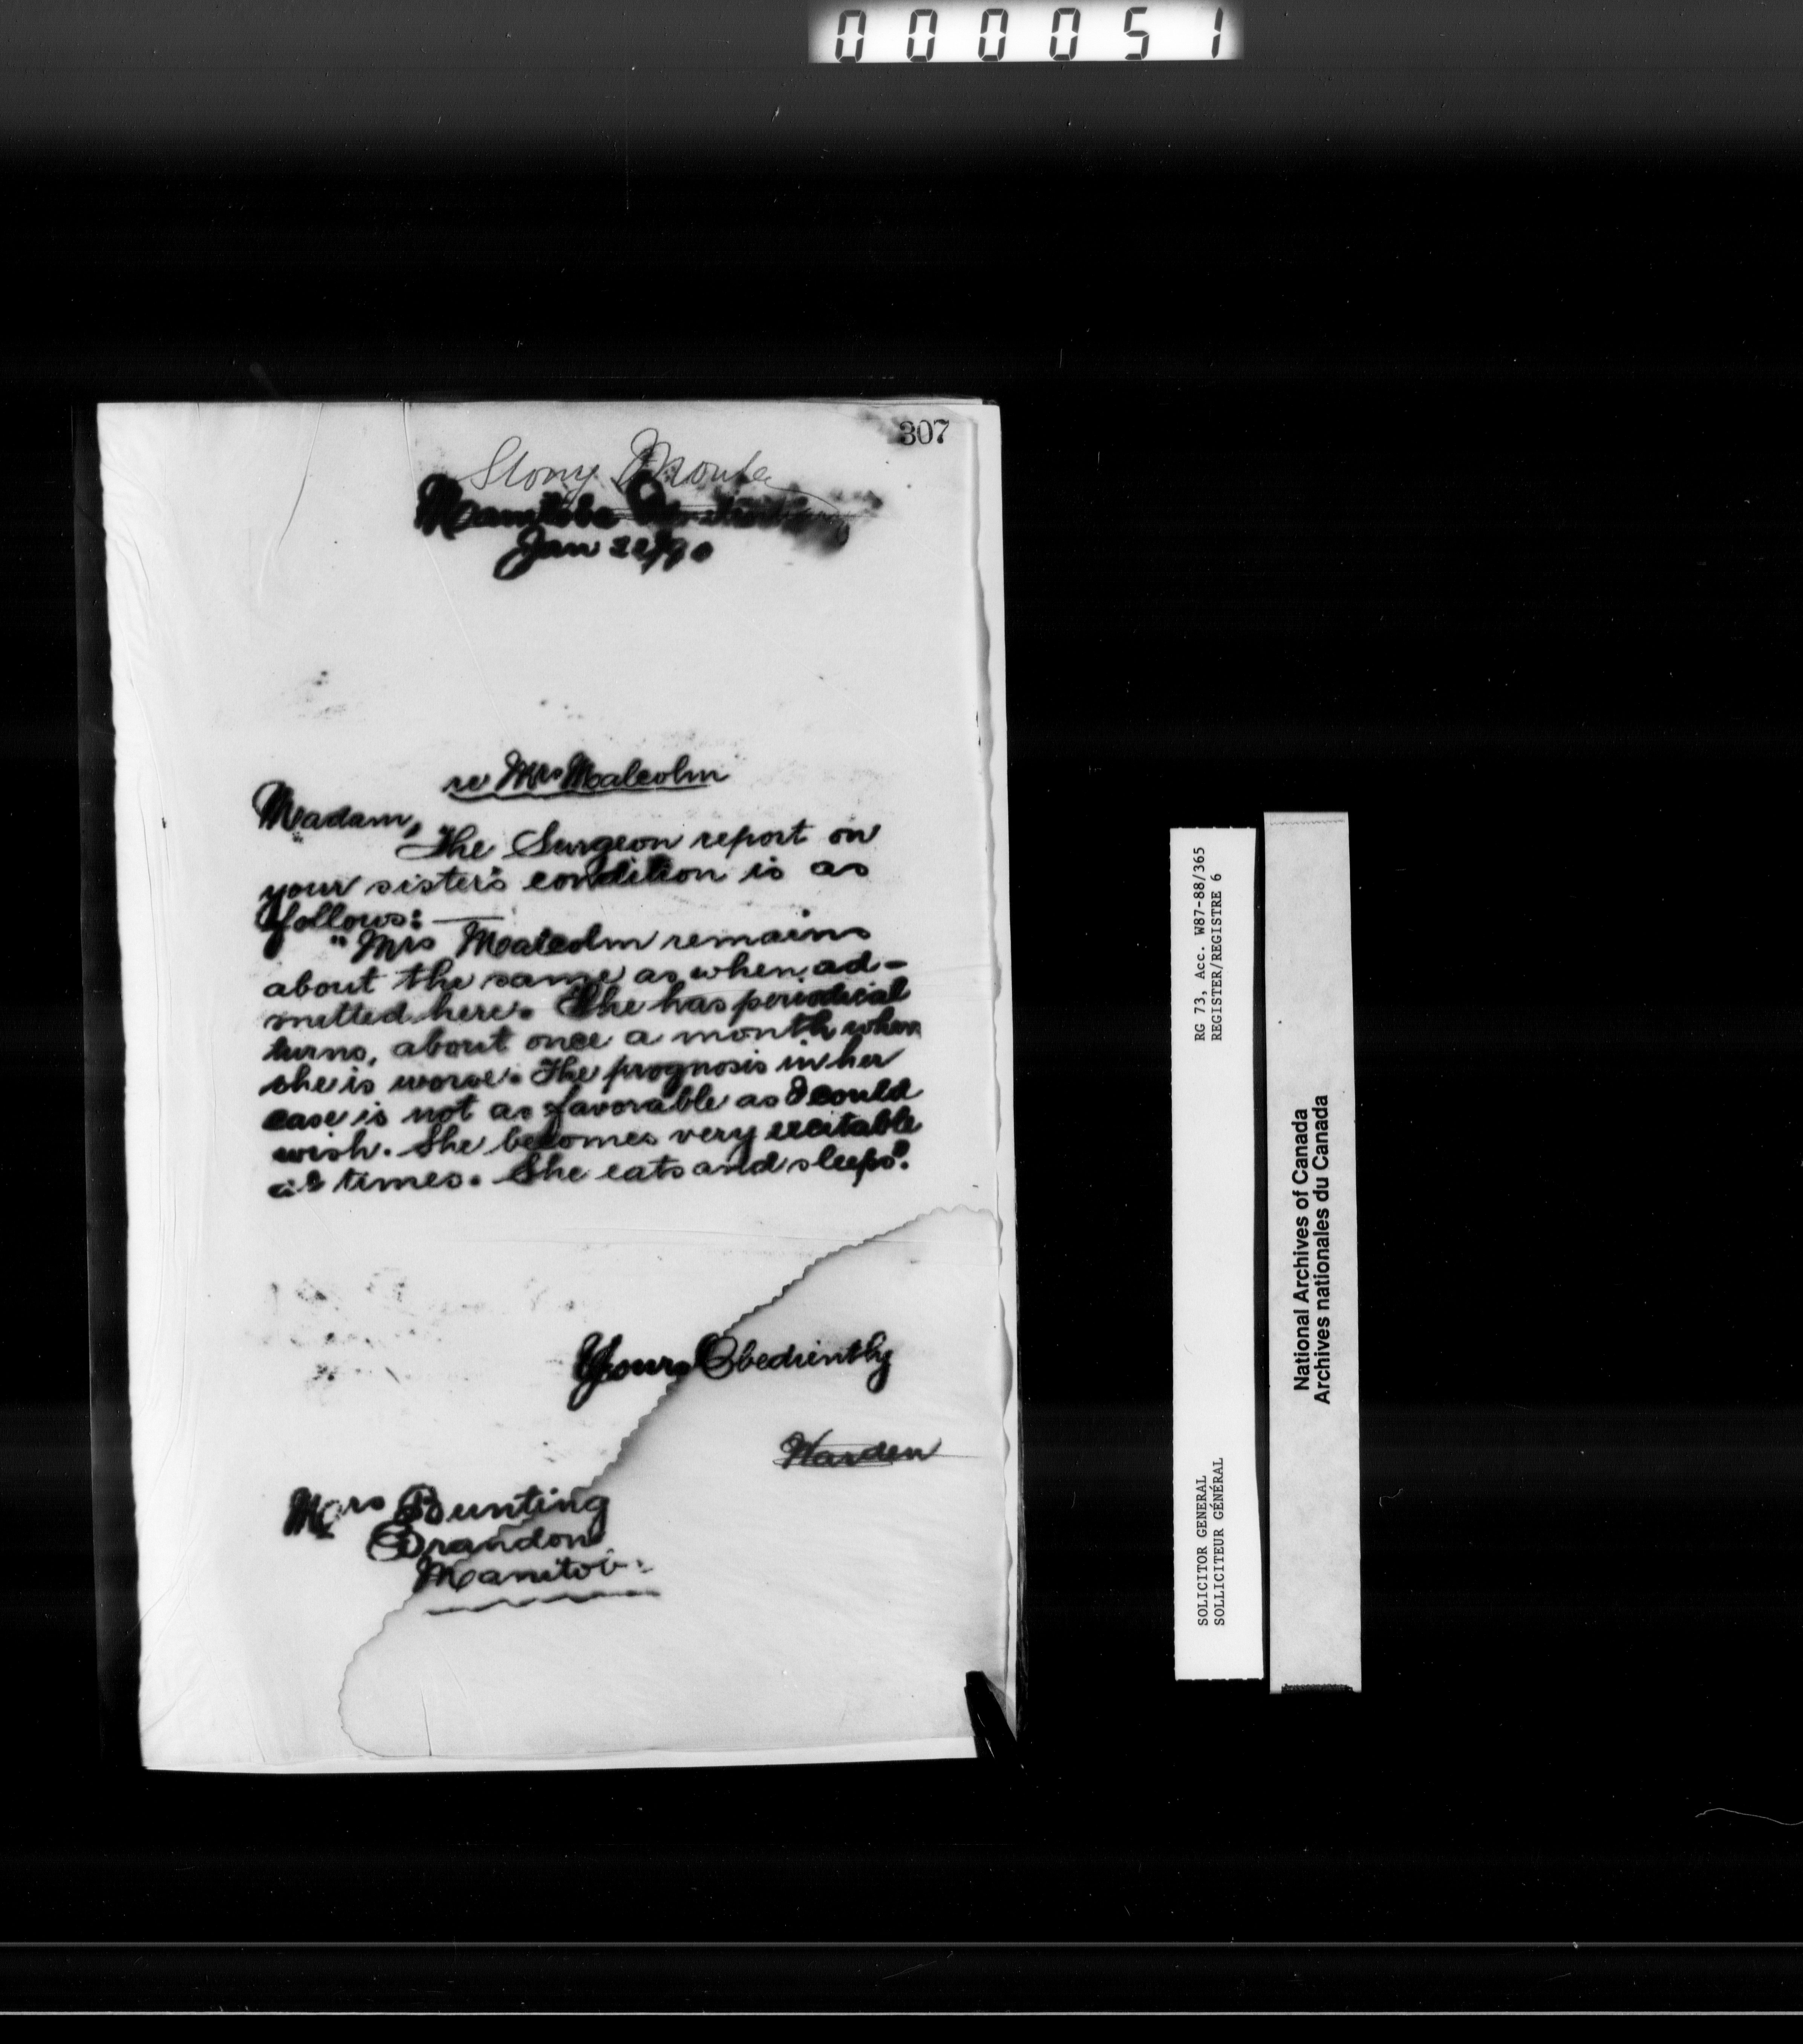 000051
307
Stony Mountn
Manitoba Penitentiary
Jan 22/90
re Mrs Malcolm
Madam,
The Surgeon report on
your sister's condition is as
follows: —
"Mrs Malcolm remains
about the same as when ad-
mitted here. She has periodical
turns, about once a month when
she is worse. The prognosis in her
case is not as favorable as I could
wish. She becomes very excitable
at times. She eats and sleeps".
Yours Obediently
Warden
Mrs Bunting
Brandon
Manitoba
RG 73, Acc. W87-88/365
REGISTER/REGISTRE 6
SOLICITOR GENERAL
SOLLICITEUR GÉNÉRAL
National Archives of Canada
Archives nationales du Canada